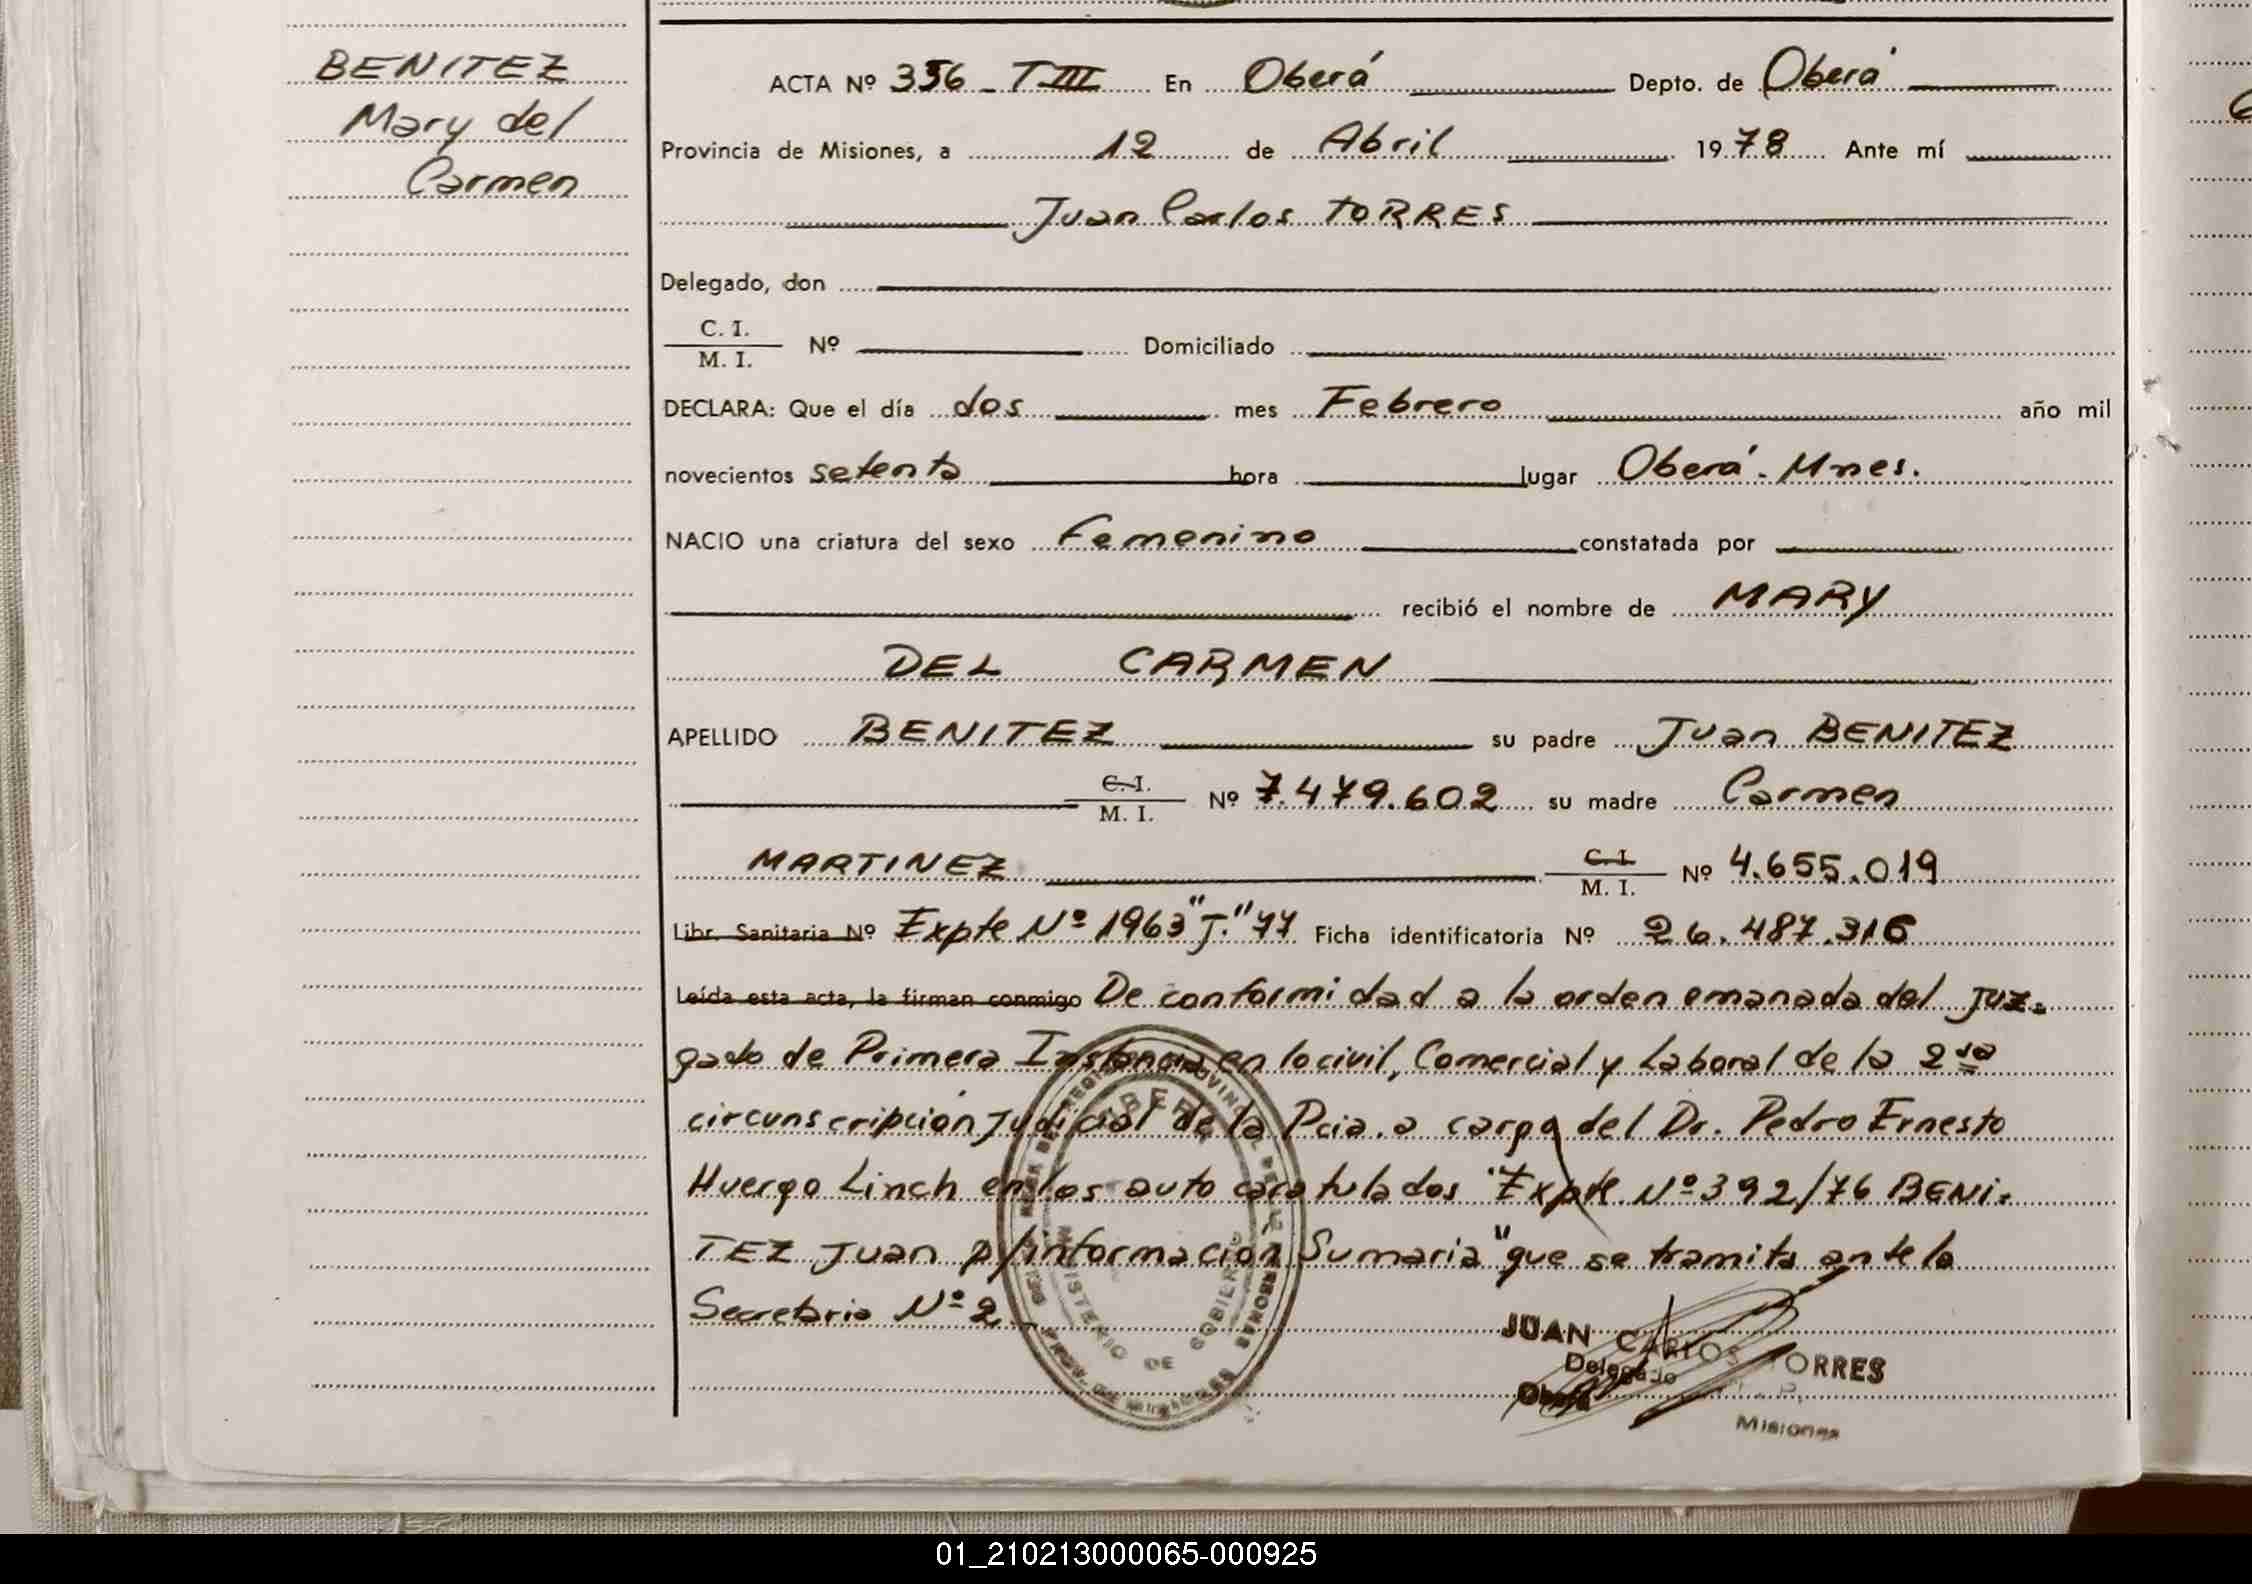 BENITEZ
Mary del
Carmen
ACTA Nº 356 - T III En Oberá Depto. de Oberá
Provincia de Misiones, a 12 de Abril 1978 Ante mí
Juan Carlos TORRES
Delegado, don
C. I.
M. I. Nº Domiciliado
DECLARA: Que el día dos mes Febrero año mil
novecientos setenta hora lugar Oberá - Mnes.
NACIO una criatura del sexo Femenino constatada por
recibió el nombre de MARY
DEL CARMEN
APELLIDO BENITEZ su padre Juan BENITEZ
C. I.
M. I. Nº 7.479.602 su madre Carmen
MARTINEZ C. I.
M. I. Nº 4.655.019
Libr. Sanitaria Nº Expte Nº 1963 "J." 77 Ficha identificatoria Nº 26.487.316
Leída esta acta, la firman conmigo De conformidad a la orden emanada del Juz-
gado de Primera Instancia en lo civil, Comercial y Laboral de la 2da
circunscripción Judicial de la Pcia. a cargo del Dr. Pedro Ernesto
Huergo Linch en los auto caratulados "Expte. Nº 392/76 BENI-
TEZ Juan p/información Sumaria" que se tramita ante la
Secretaria Nº 2
MINISTERIO DE GOBIERNO
JUAN CARLOS TORRES
Delegado
Oberá
Misiones
01_210213000065-000925